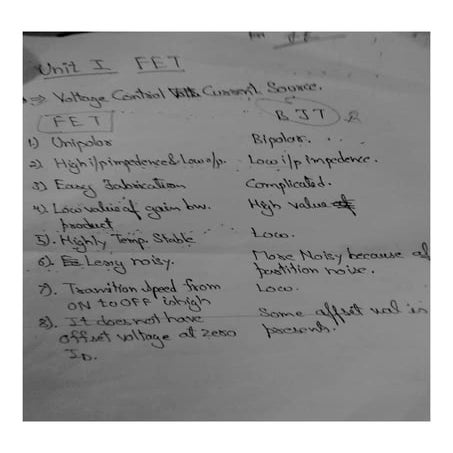 Unit I FET
⇒ Voltage Control Current Source.
FET BJT
1) Unipolar Bipolar.
2) High i/p impedence & Low o/p. Low i/p impedence.
3) Easy fabrication Complicated.
4) Low value of gain bw. High value
product
5). Highly Temp. Stable Low.
6). Lessy noisy. More Noisy because of
partition noise.
7). Transition speed from Low.
ON to OFF is high
8). It does not have Some offset val is
offset voltage at zero present.
ID.